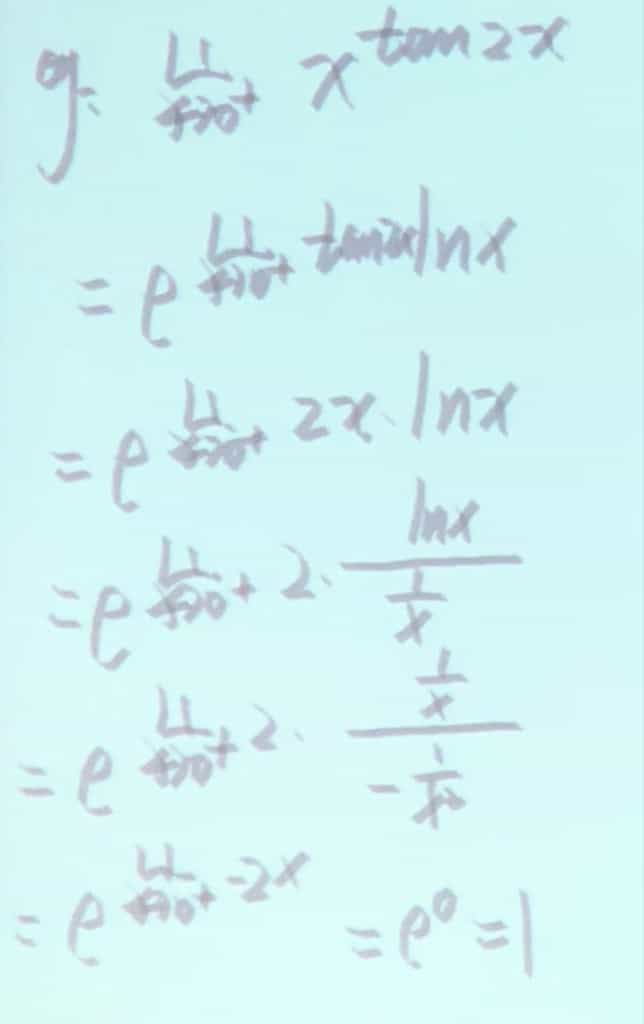 eg: lim x→0⁺ x^(tan2x)
= e^(lim x→0⁺ tan2x lnx)
= e^(lim x→0⁺ 2x·lnx)
= e^(lim x→0⁺ 2·(lnx)/(1/x))
= e^(lim x→0⁺ 2·(1/x)/(-1/x²))
= e^(lim x→0⁺ -2x) = e⁰ = 1